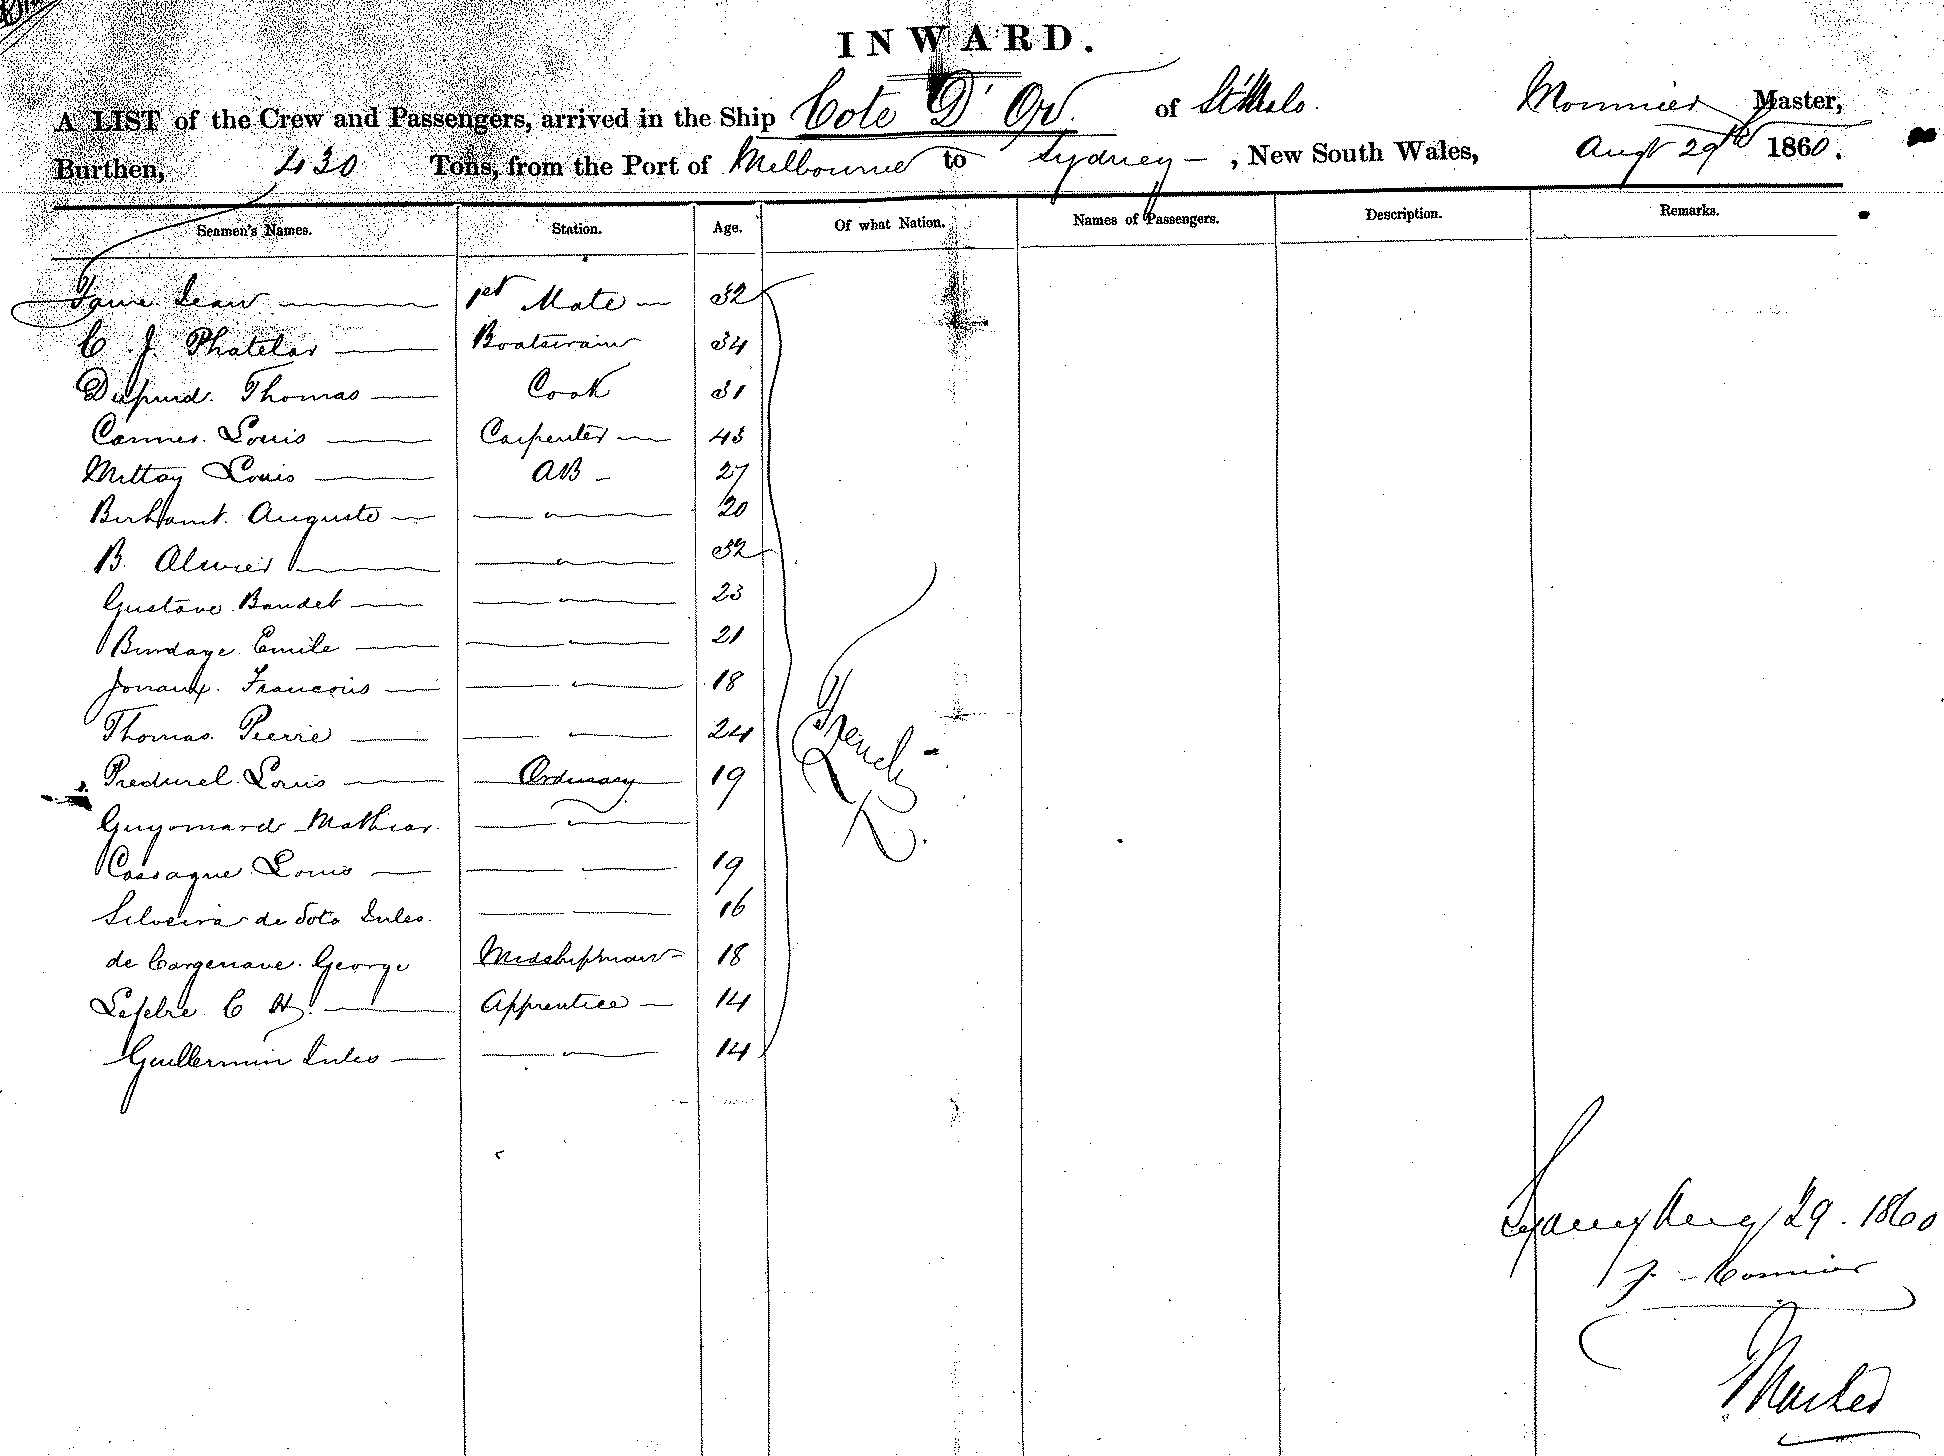 INWARD.
A LIST of the Crew and Passengers, arrived in the Ship Cote D' Or. of St Malo. Monnier Master,
Burthen, 430 Tons, from the Port of Melbourne to Sydney - , New South Wales, Augt 29th 1860.
Seamen's Names. Station. Age. Of what Nation. Names of Passengers. Description. Remarks.
1st Mate 32
C. J. Phatelar Boatswain 34
Thomas Cook 31
Louis Carpenter 43
Louis AB 27
Auguste " 20
B. " 32
Gustave Baudet " 23
Emile " 21
Francois " 18
Thomas. Pierre " 24
French
Louis Ordinary 19
Guyomard Mathias. "
Cassagne Louis 19
Silveira de Soto Jules. 16
de Cargenave. George Midshipman 18
Lefebre C H. Apprentice 14
Guillermin Jules " 14
Sydney Aug 29. 1860